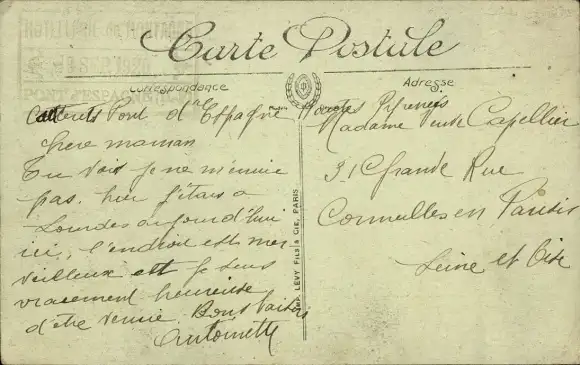 Carte Postale
Correspondance
Adresse
Cauterets Pont d'Espagne Hautes Pyrénées
Chere maman
Tu vois je ne m'ennuie
pas. hier j'étais a
Lourdes aujourd'hui
ici, l'endroit est mer
veilleux et je suis
vraiement heureuse
d'être venue. Bons baisers
Antoinette
IMP. LÉVY FILS & CIE, PARIS
Madame Veuve Capellier
31 Grande Rue
Cormeilles en Parisis
Seine et Oise